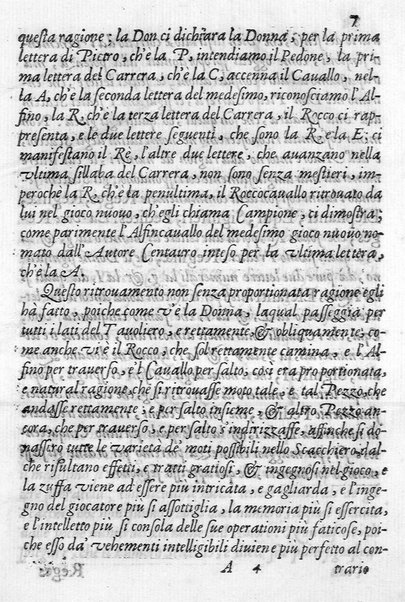 7
questa ragione; la Don ci dichiara la Donna; per la prima
lettera di Pietro, ch'è la P, intendiamo il Pedone, la pri
ma lettera del Carrera, ch'è la C, accenna il Cauallo, nel-
la A, ch'è la seconda lettera del medesimo, riconosciamo l'Al-
fino, la R, ch'è la terza lettera del Carrera, il Rocco ci rap-
presenta, e le due lettere seguenti, che sono la R, e la E; ci
manifestano il Rè, l'altre due lettere, che auanzano nella
vltima sillaba del Carrera, non sono senza mestieri, im-
peroche la R, ch'è la penultima, il Roccocauallo ritrouato da
lui nel gioco nuouo, ch'egli chiama Campione, ci dimostra;
come parimente l'Alfincauallo del medesimo gioco nuouo no-
mato dall'Autore Centauro inteso per la vltima lettera,
ch'è la A.
Questo ritrouamento non senza proportionata ragione egli
hà fatto, poiche come v'è la Donna, laqual passeggia per
tutti i lati del Tauoliero, e rettamente, & obliquamente, co-
me anche vi è il Rocco, che sol rettamente camina, e l'Al-
fino per trauerso, e'l Cauallo per salto, così era proportionata,
e natural ragione, che si ritrouasse moto tale, e tal Pezzo, che
andasse rettamente, e per salto insieme, & altro Pezzo an-
cora, che per trauerso, e per salto s'indirizzasse, affinche si do-
nassero tutte le varietà de' moti possibili nello Scacchiero, dal-
che risultano effetti, e tratti gratiosi, & ingegnosi nel gioco, e
la zuffa viene ad essere più intricata, e gagliarda, e l'inge-
gno del giocatore più si assottiglia, la memoria più si essercita,
e l'intelletto più si consola delle sue operationi più faticose, poi-
che esso da' vehementi intelligibili diuiene più perfetto al con-
A 4 trario